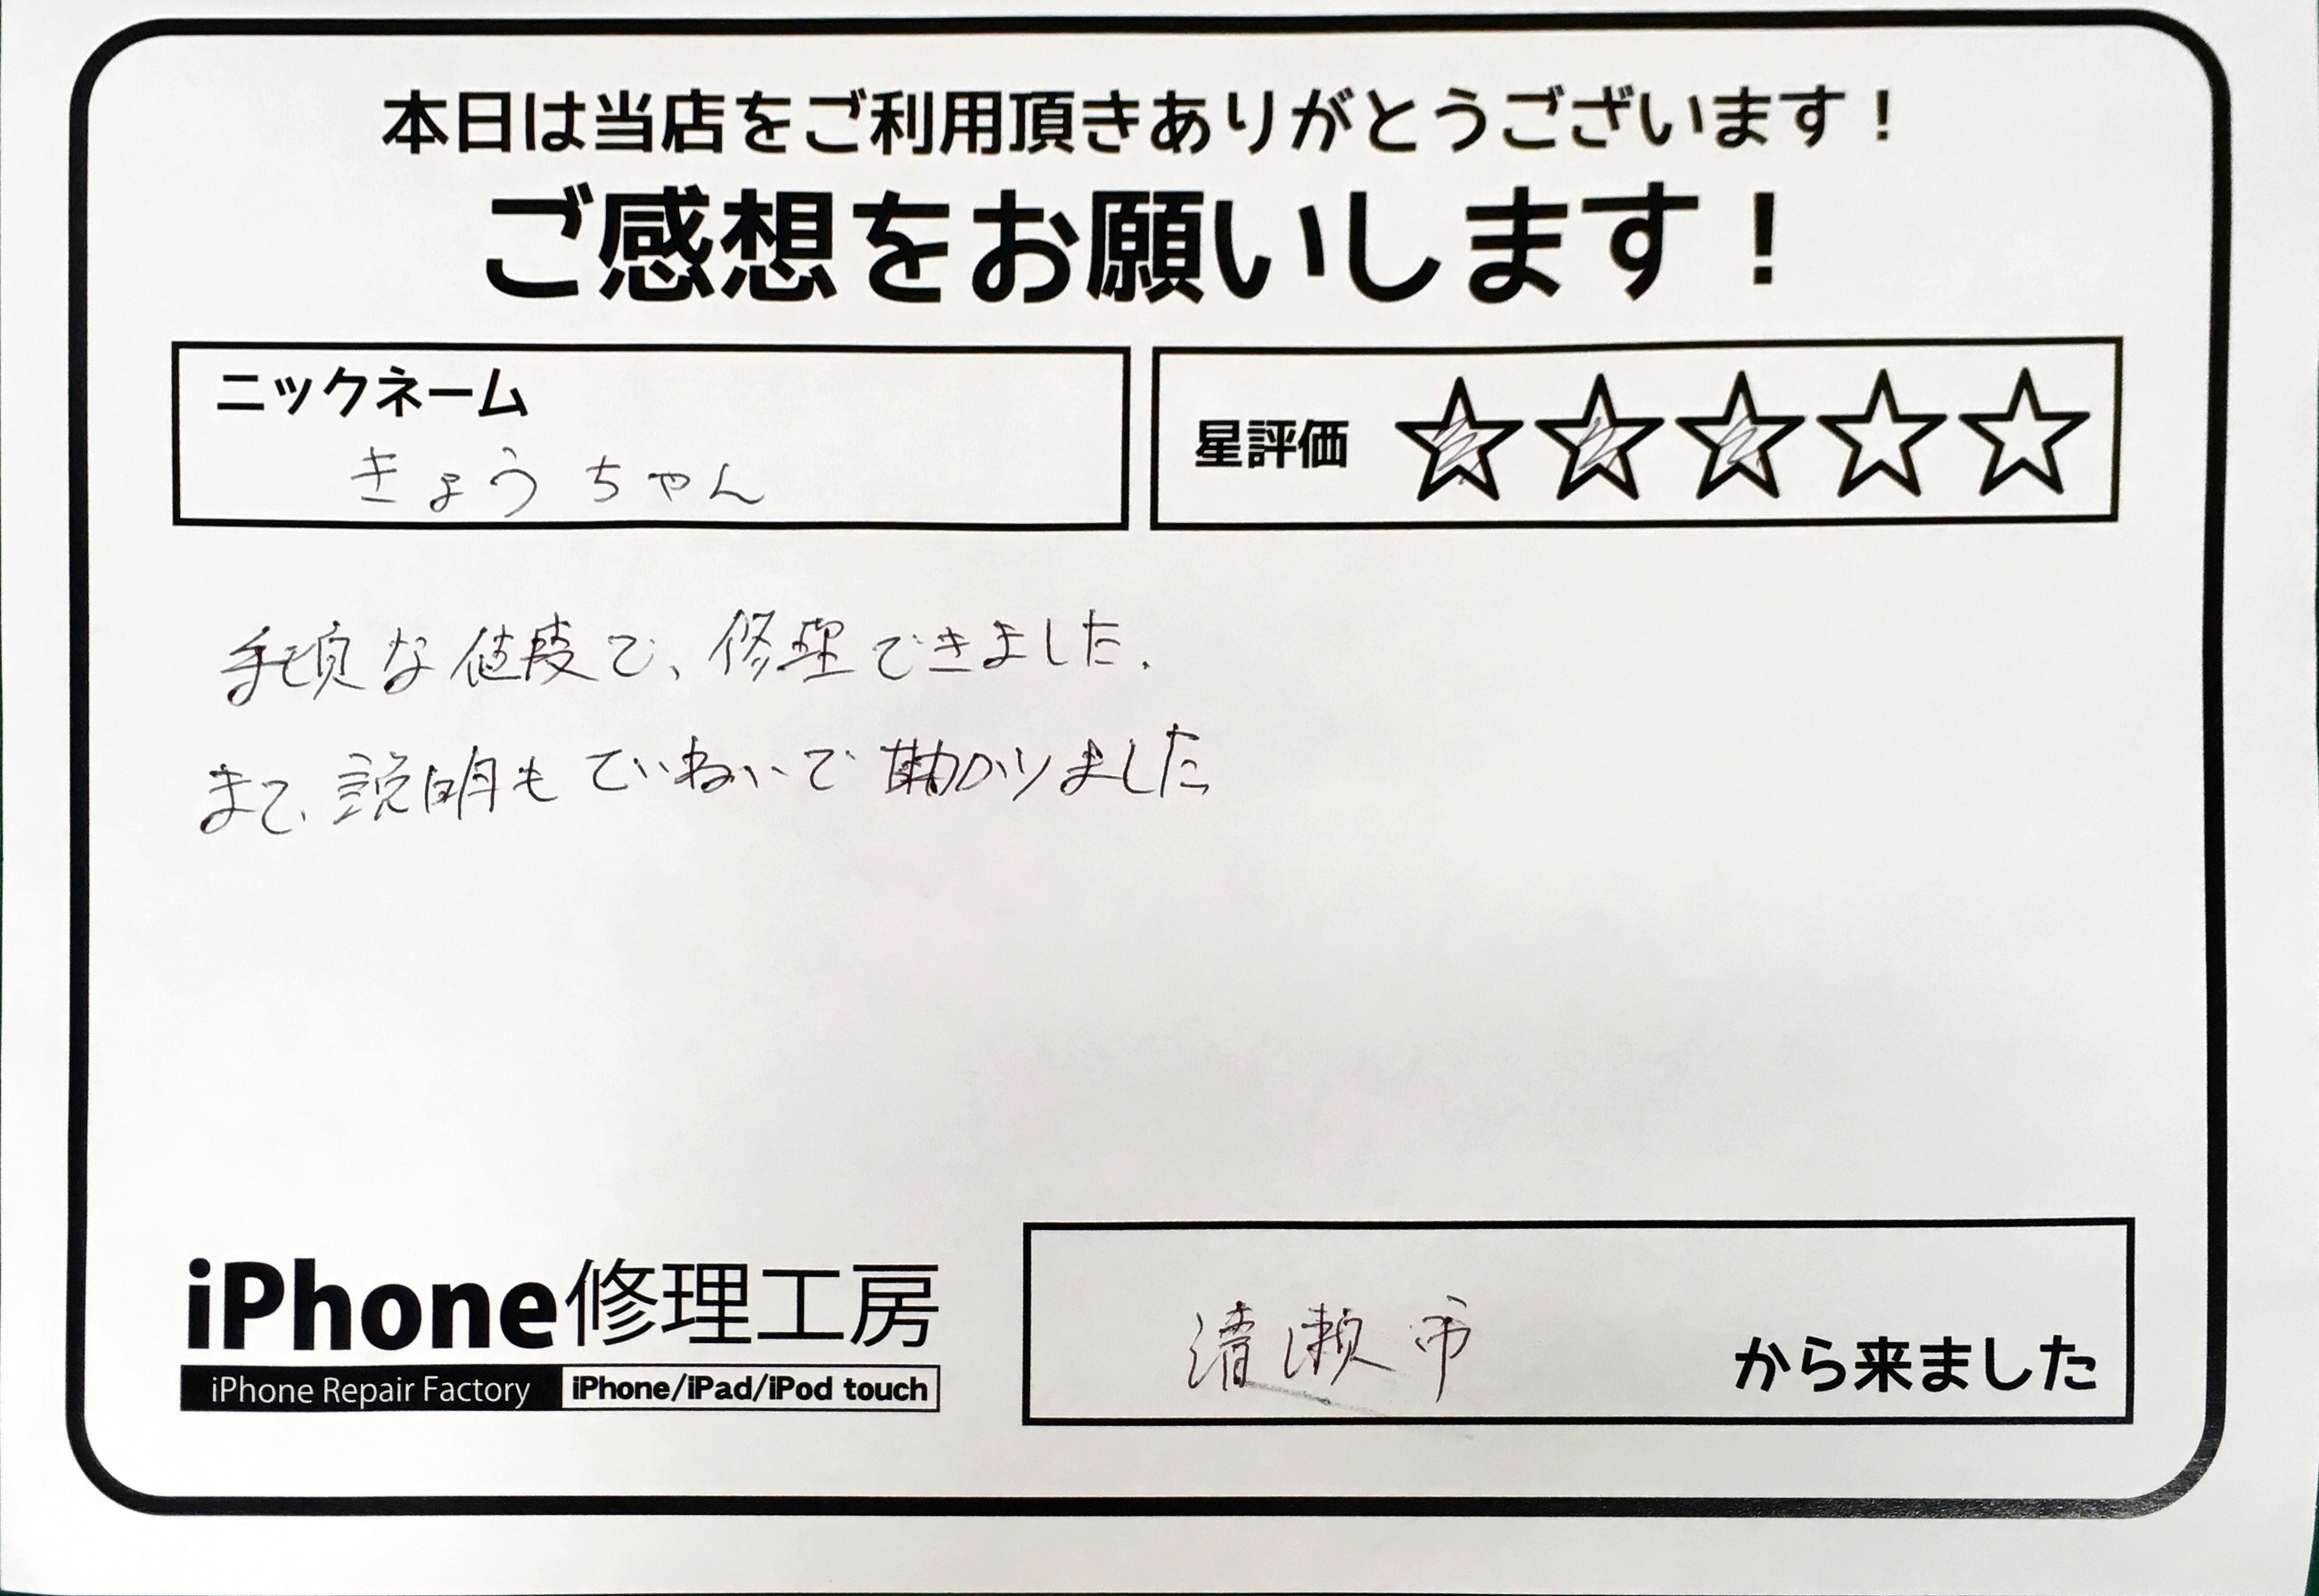 本日は当店をご利用頂きありがとうございます！
ご感想をお願いします！
ニックネーム
きょうちゃん
星評価 ☆☆☆☆☆
手頃な値段で、修理できました.
まて、説明もていねいで助かりました
iPhone修理工房
iPhone Repair Factory iPhone/iPad/iPod touch
清瀬市 から来ました